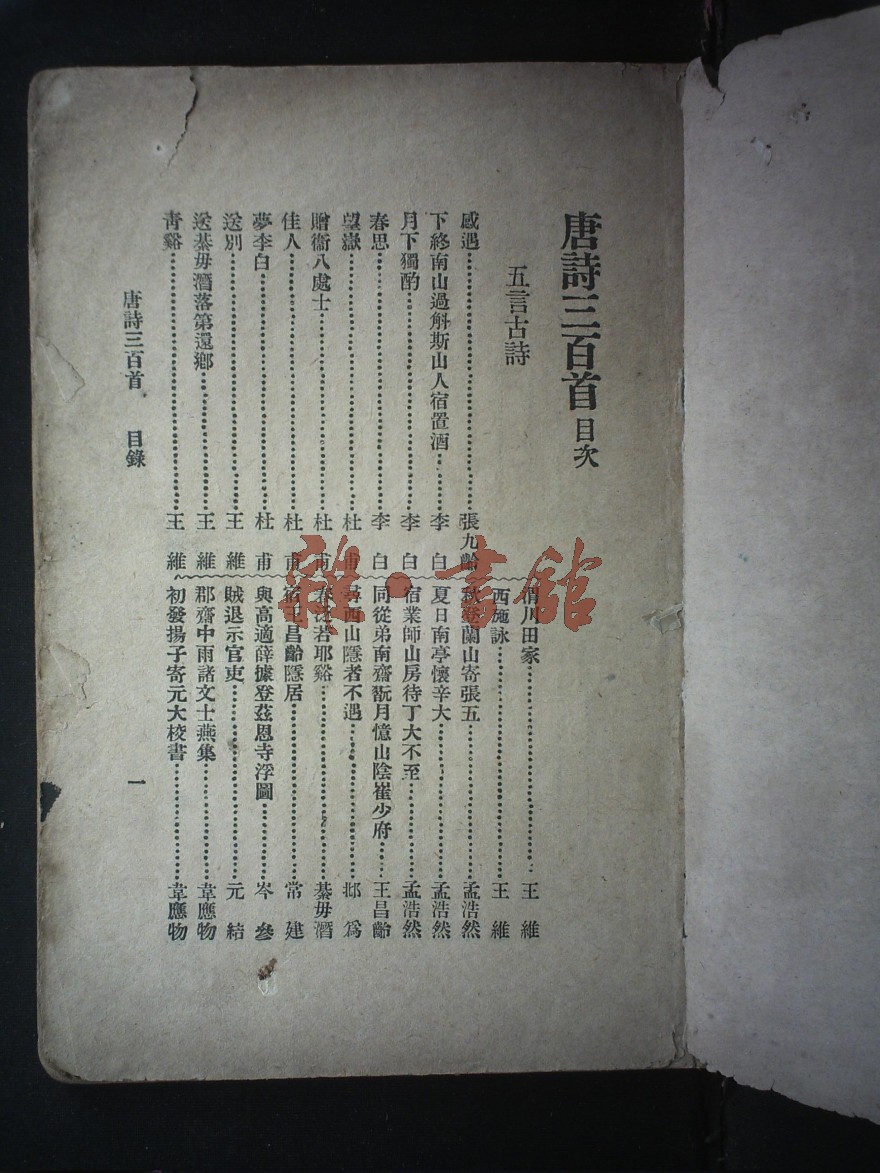 唐詩三百首 目次
五言古詩
感遇 張九齡
下終南山過斛斯山人宿置酒 李白
月下獨酌 李白
春思 李白
望嶽 杜甫
贈衞八處士 杜甫
佳人 杜甫
夢李白 杜甫
送別 王維
送綦毋潛落第還鄉 王維
靑谿 王維
渭川田家 王維
西施詠 王維
秋登蘭山寄張五 孟浩然
夏日南亭懷辛大 孟浩然
宿業師山房待丁大不至 孟浩然
同從弟南齋翫月憶山陰崔少府 王昌齡
尋西山隱者不遇 邱爲
春泛若耶谿 綦毋潛
宿王昌齡隱居 常建
與高適薛據登慈恩寺浮圖 岑參
賊退示官吏 元結
郡齋中雨諸文士燕集 韋應物
初發揚子寄元大校書 韋應物
唐詩三百首 目錄
一
雜·書館